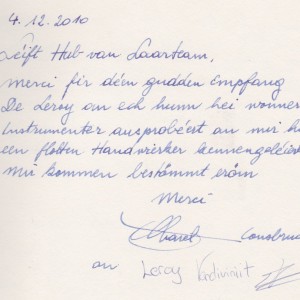 4.12.2010
Léift Hub van Laarteam,
Merci fir déën gudden Empfang
De Leroy an ech hunn hei wonner
Instrumenter ausprobéiert an mir hu
een flotten Handwierker kennengeléiert
Mir kommen bestëmmt erëm
Merci
Consbruc
an Leroy